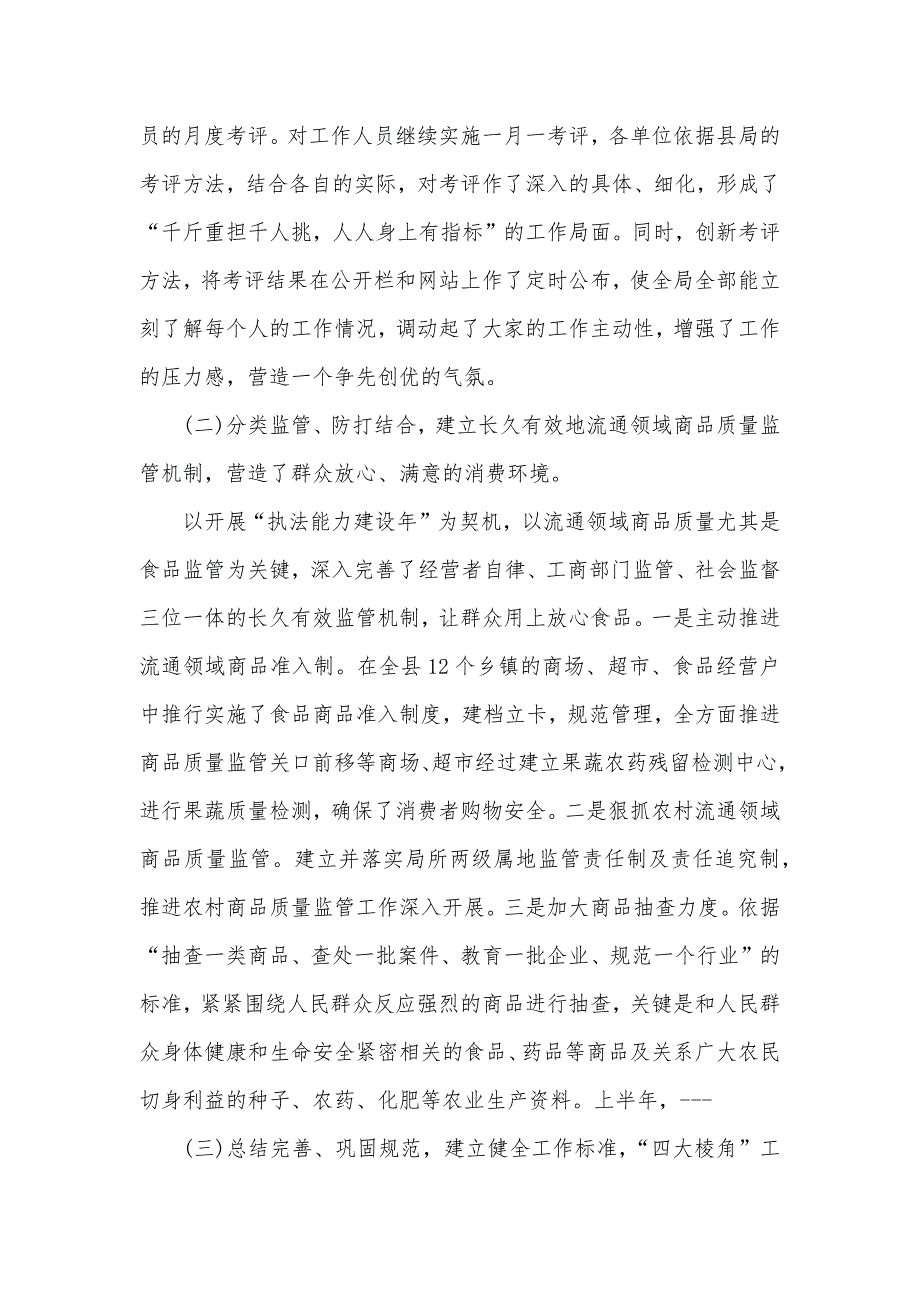 员的月度考评。对工作人员继续实施一月一考评，各单位依据县局的
考评方法，结合各自的实际，对考评作了深入的具体、细化，形成了
“千斤重担千人挑，人人身上有指标”的工作局面。同时，创新考评
方法，将考评结果在公开栏和网站上作了定时公布，使全局全部能立
刻了解每个人的工作情况，调动起了大家的工作主动性，增强了工作
的压力感，营造一个争先创优的气氛。
(二)分类监管、防打结合，建立长久有效地流通领域商品质量监
管机制，营造了群众放心、满意的消费环境。
以开展“执法能力建设年”为契机，以流通领域商品质量尤其是
食品监管为关键，深入完善了经营者自律、工商部门监管、社会监督
三位一体的长久有效监管机制，让群众用上放心食品。一是主动推进
流通领域商品准入制。在全县12个乡镇的商场、超市、食品经营户
中推行实施了食品商品准入制度，建档立卡，规范管理，全方面推进
商品质量监管关口前移等商场、超市经过建立果蔬农药残留检测中心，
进行果蔬质量检测，确保了消费者购物安全。二是狠抓农村流通领域
商品质量监管。建立并落实局所两级属地监管责任制及责任追究制，
推进农村商品质量监管工作深入开展。三是加大商品抽查力度。依据
“抽查一类商品、查处一批案件、教育一批企业、规范一个行业”的
标准，紧紧围绕人民群众反应强烈的商品进行抽查，关键是和人民群
众身体健康和生命安全紧密相关的食品、药品等商品及关系广大农民
切身利益的种子、农药、化肥等农业生产资料。上半年，---
(三)总结完善、巩固规范，建立健全工作标准，“四大棱角”工